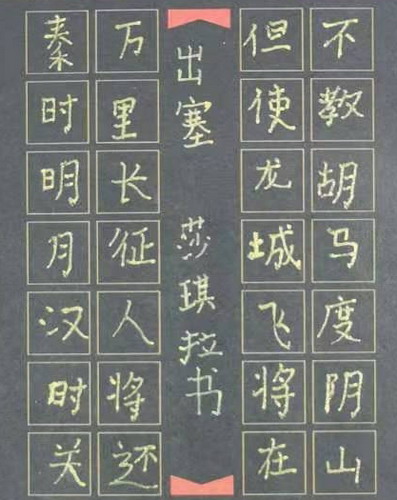 秦时明月汉时关
万里长征人将还
出塞 莎琪拉书
但使龙城飞将在
不教胡马度阴山